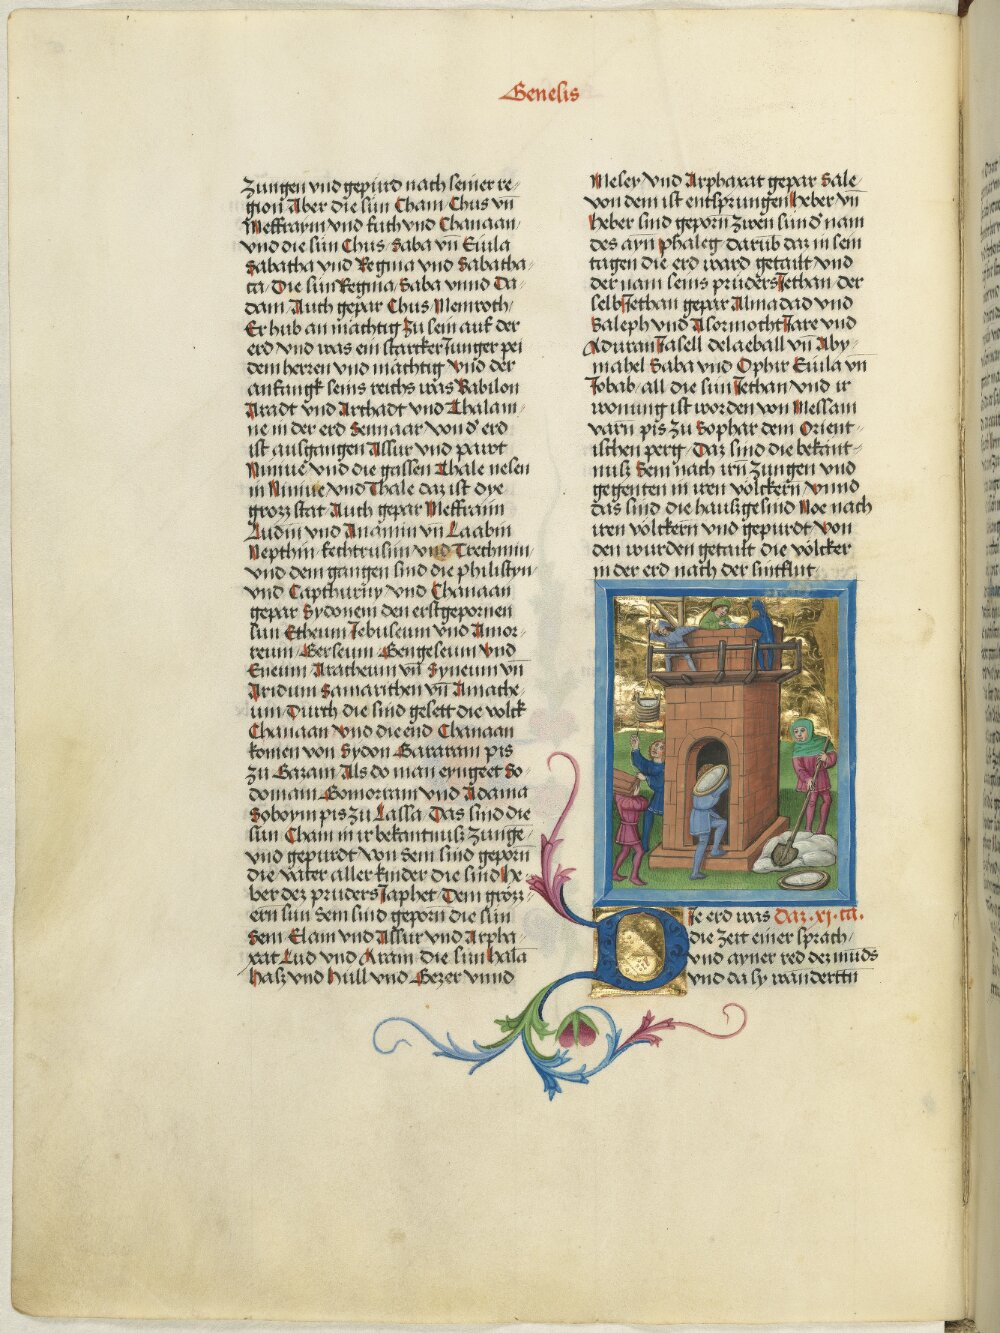 Genesis
Zungen vnd gepürd nach seiner re-
gion̄ Aber die sün Cham Chus vn̄
Meffraym vnd futh vnd Chanaan
vnd die sün Chus Saba vn̄ Euila
Sabatha vnd Regma vnd Sabatha-
ta Die sün Regma Saba vnnd Da-
dam Auch gepar Chus Nemroth
Er hub an mächtig zu sein auf der
erd vnd was ein starcker Junger pei
dem herren vnd mächtig vnd der
anfangk seins reichs was Babilon
Aradt vnd Archadt vnd Chalam-
ne in der erd Sennaar von d' erd
ist ausgangen Assur vnd pawt
Niniue vnd die gassen Chale nesen
in Niniue vnd Chale daz ist dye
grozz stat Auch gepar Meffraim
Ludin vnd Anamin vn̄ Laabin
Nepthin kechtrusim vnd Trechmin
vnd dem gangen sind die philistyn
vnd Capthuriny vnd Chanaan
gepar Sydonem den erstgepornen
sun Etheum Jebuseum vnd Amor-
reum Gerseum Gengeseum vnd
Eneum Aratheum vn̄ Syneum vn̄
Aridum Samarithen vn̄ Amathe-
um Durch die sind geseet die volck
Chanaan vnd die end Chanaan
komen von Sydon Gararam pis
zu Gazam Als do man eyngeet So-
domam Gomorram vnd Adama
Soboym pis zu Lassa Das sind die
sün Cham in ir bekantnusz Zunge
vnd gepurdt von Sem sind geporn
die väter aller kinder die sind he-
ber dez pruders Japhet Dem grözz-
ern sun Sem sind geporn die sün
Sem Elam vnd Assur vnd Arpha-
xat Lud vnd Aram die sün hala
hasz vnd Hull vnd Gezer vnnd
Meser vnd Arphaxat gepar Sale
von dem ist entsprungen heber vn̄
heber sind geporn zwen sünd nam
des ayn̄ phaleg darūb daz in sein
tagen die erd ward getailt vnd
der nam seins prüders Jethan der
selb Jethan gepar Almadad vnd
Saleph vnd Asormotht Jare vnd
Aduran Jasell delaeball vn̄ Aby-
mahel Saba vnd Ophir Euila vn̄
Jobab all die sün Jethan vnd ir
wonung ist worden von Messam
varn pis zu Sophar dem Orient-
ischen perg Daz sind die bekant-
nusz Sem nach irn̄ Zungen vnd
gegenten in iren völckern vnnd
das sind die hauszgesind Noe nach
iren völckern vnd gepurdt von
den wurden getailt die völcker
in der erd nach der sintflut
DJe erd was Daz .xj. ca.
die Zeit einer sprach
vnd ayner red dez munds
vnd da sy wandertn̄